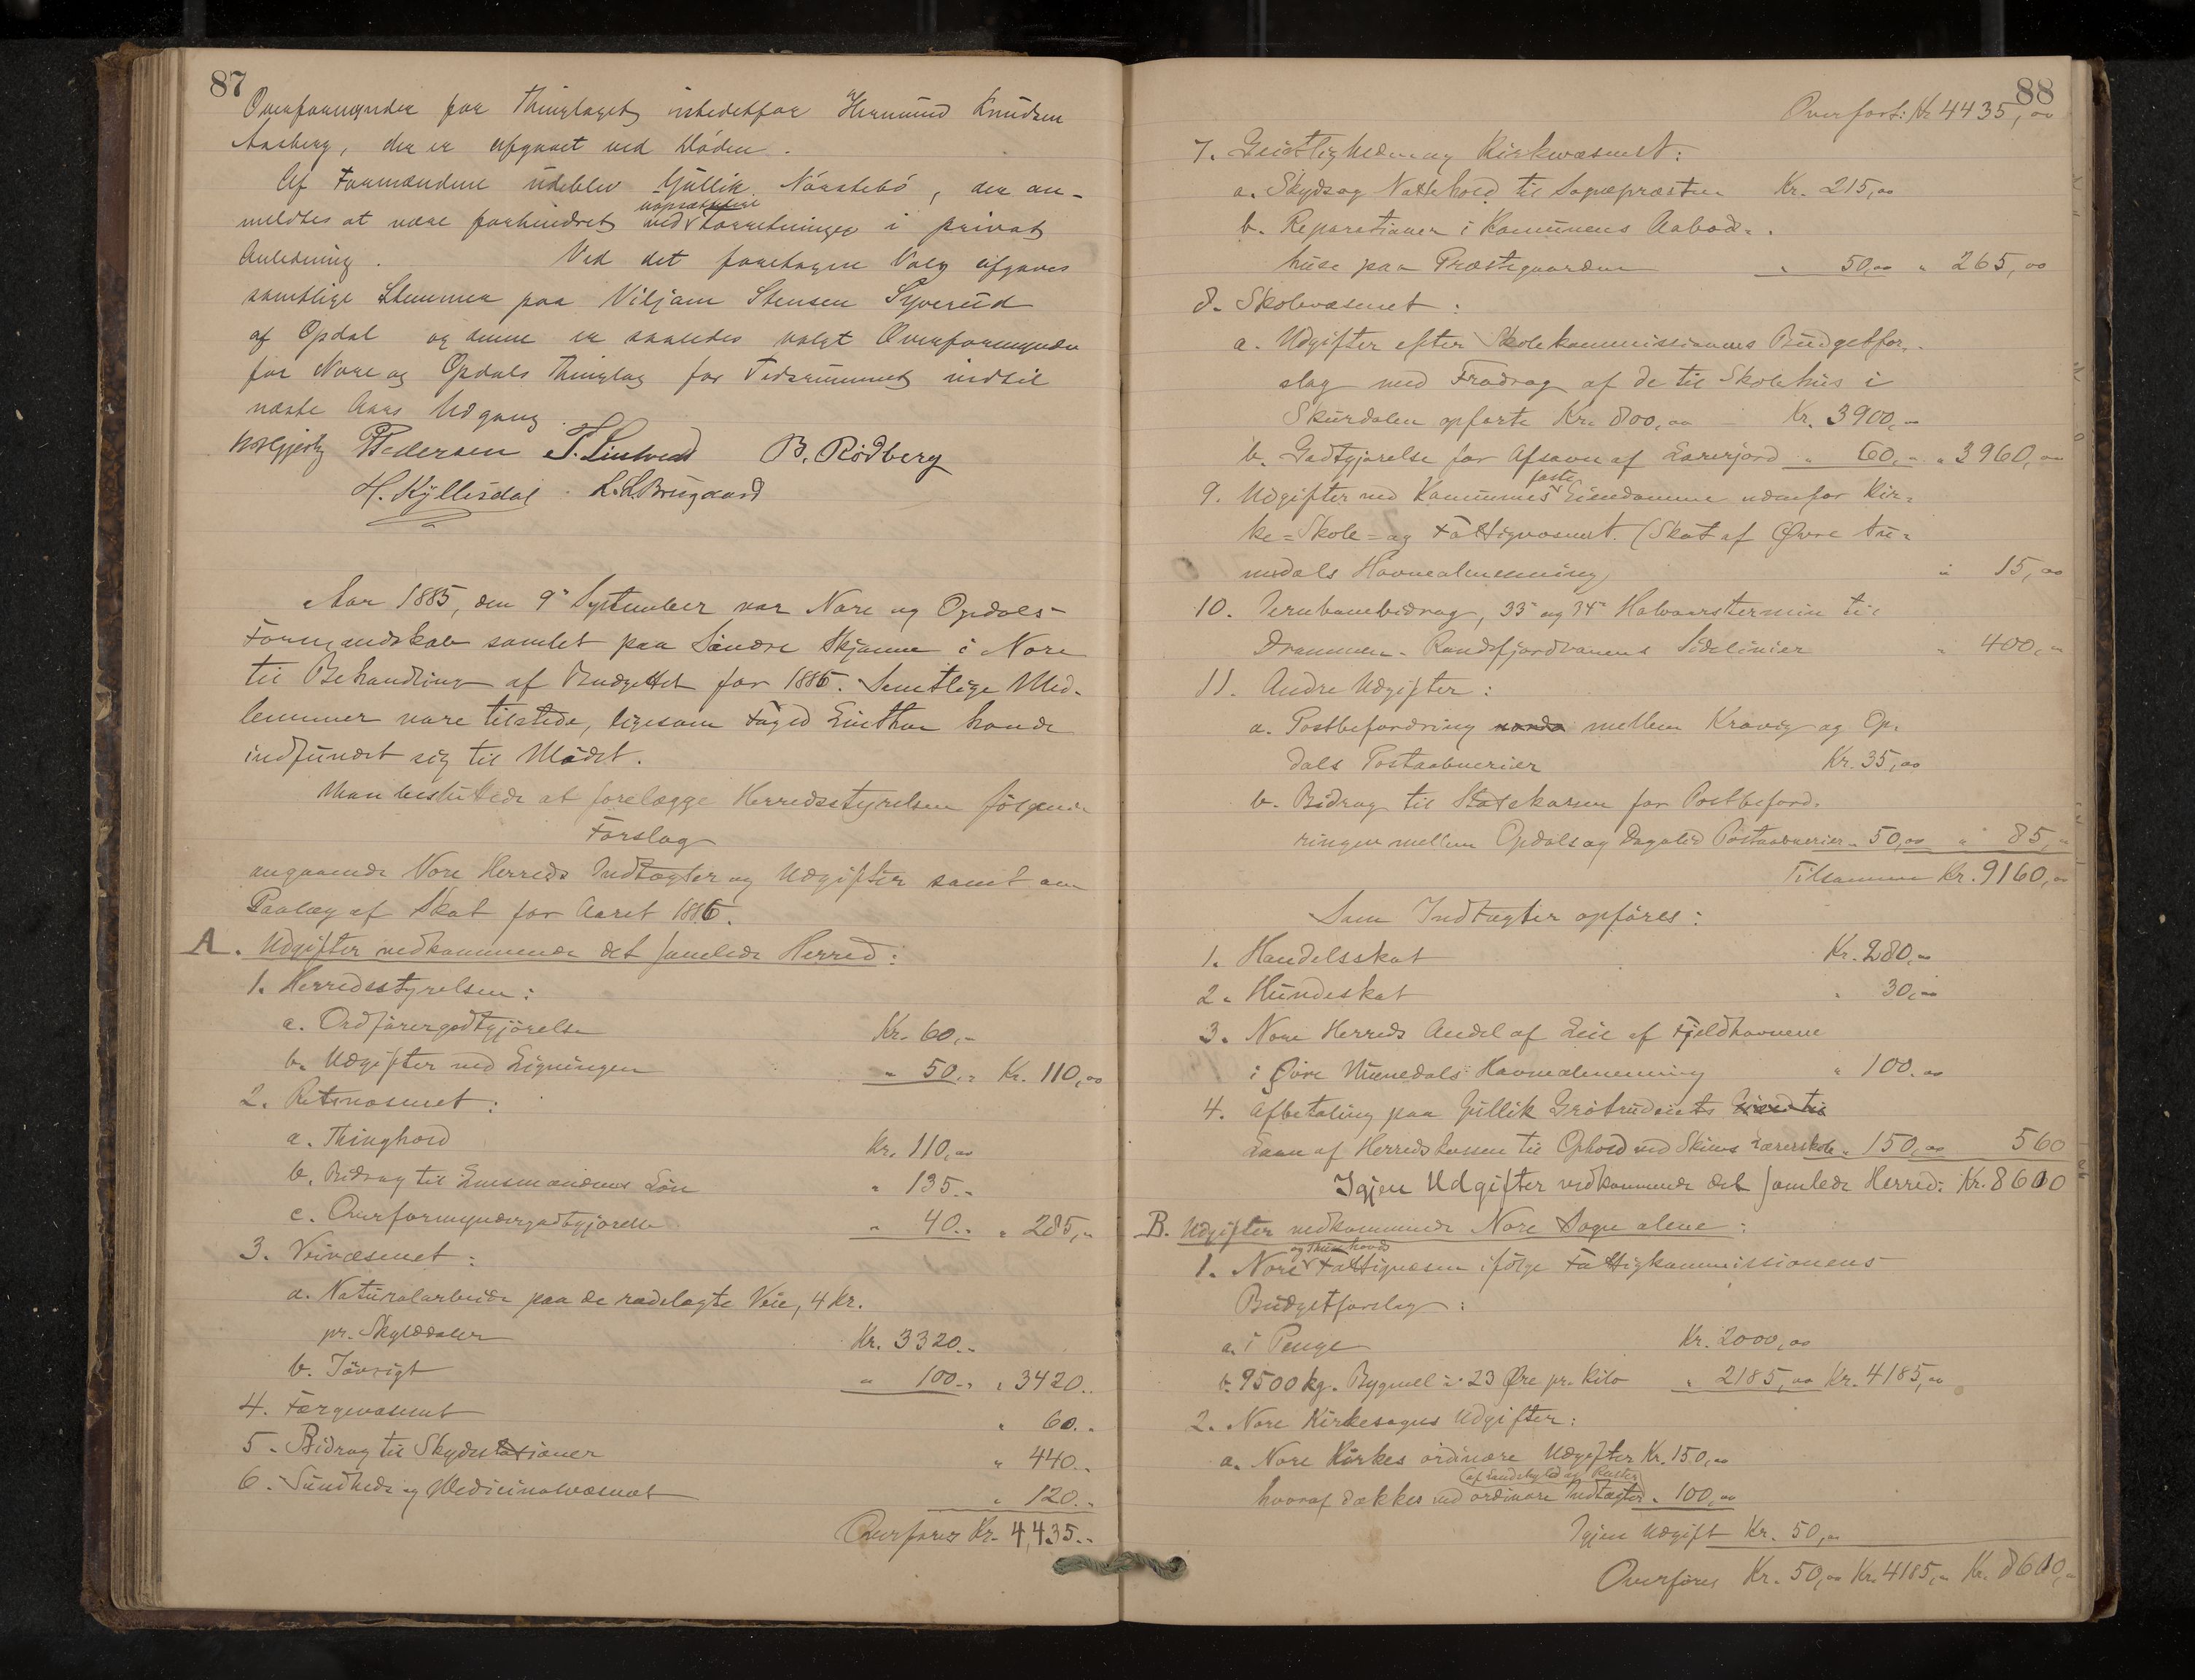 87
Overformynder for Thinglaget istedetfor Hermund Knudsen
Aasberg, der er afgaaet ved Døden.
Af Formændene udeblev Gullik Nørstebø, der an-
meldtes at være forhindret ved Forretninger i privat
Anledning. Ved det foretagne Valg afgaves
samtlige Stemmer paa Viljam Stensen Syverud
af Opdal og denne er saaledes valgt Overformynder
for Nore og Opdals Thinglag for Tidsrummet indtil
næste Aars Udgang.
PPedersen T. Lintvedt B. Rødberg
H. Kyllesdal L. L. Brugaard
Aar 1885, den 9de September var Nore og Opdals
Formandskab samlet paa Søndre Skjønne i Nore
til Behandling af Budgettet for 1886. Samtlige Med-
lemmer vare tilstede, ligesom Foged Einthoe havde
indfundet sig til Mødet.
Man besluttede at forelægge Herredsstyrelsen følgende
Forslag
angaaende Nore Herreds Indtægter og Udgifter samt om
Paalæg af Skat for Aaret 1886.
A. Udgifter vedkommende det samlede Herred:
1. Herredsstyrelsen:
a. Ordførergodtgjørelse Kr. 60,-
b. Udgifter ved Ligningen " 50.- Kr. 110,00
2. Retsvæsenet:
a. Thinghold Kr. 110,00
b. Bidrag til Lensmandens Løn " 135.-
c. Overformyndergodtgjørelse " 40.- " 285,-
3. Veivæsenet:
a. Naturalarbeide paa de rodelagte Veie, 4 Kr.
pr. Skylddaler Kr. 3320.-
b. Iøvrigt " 100.- " 3420.-
4. Færgevæsenet " 60.-
5. Bidrag til Skydsstationer " 440.-
6. Sundheds og Medicinalvæsenet " 120.-
Overføres Kr. 4,435.-
88
Overført: Kr 4435,00
7. Geistligheden og Kirkevæsenet:
a. Skyds og Nattehold til Sognepræsten Kr. 215,00
b. Reparationer i Komunens Aabod-
huse paa Præstegaarden " 50,00 " 265,00
8. Skolevæsenet:
a. Udgifter efter Skolekommissionens Budgetfor-
slag med Fradrag af de til Skolehus i
Skurdalen opførte Kr. 800,00 - Kr. 3900,-
b. Godtgjørelse for Afsavn af Lærerjord " 60,- " 3960,00
faste
9. Udgifter ved Komunens Eiendomme udenfor Kir-
ke- Skole- og Fattigvæsenet. (Skat af Øvre Nu-
medals Havnealmenning) " 15,00
10. Jernbanebidrag, 33te og 34te Halvaarstermin til
Drammen-Randsfjordbanens Sidelinier " 400,-
11. Andre Udgifter:
a. Postbefordring mellem Kravig og Op-
dals Postaabnerier Kr. 35,00
b. Bidrag til Statskassen for Postbeford-
ringen mellem Opdals og Dagalid Postaabnerier " 50,00 " 85,-
Tilsammen Kr. 9160,00
Som Indtægter opføres:
1. Handelsskat Kr. 280,00
2. Hundeskat " 30,00
3. Nore Herreds Andel af Leie af Fjeldhavnene
i Øvre Numedals Havnealmenning " 100.00
4. Afbetaling paa Gullik Grøtrudeiets
Laan af Herredskassen til Ophold ved Skiens Lærerskole " 150,00 560
Igjen Udgifter vedkommende det samlede Herred: Kr. 8600
B. Udgifter vedkommende Nore Sogn alene:
og Thunhovds
1. Nore Fattigvæsen ifølge Fattigkommissionens
Budgetforslag:
a. i Penge Kr. 2000,00
b. 9500 kg. Bygmel à 23 Øre pr. Kilo " 2185,00 Kr. 4185,00
2. Nore Kirkesogns Udgifter:
a. Nore Kirkes ordinære Udgifter Kr. 150,00
(af Landskyld og Renter)
hvoraf dækkes ved ordinære Indtægter " 100,00
Igjen Udgift Kr. 50,00
Overføres Kr. 50,00 Kr. 4185,- Kr. 8600,-